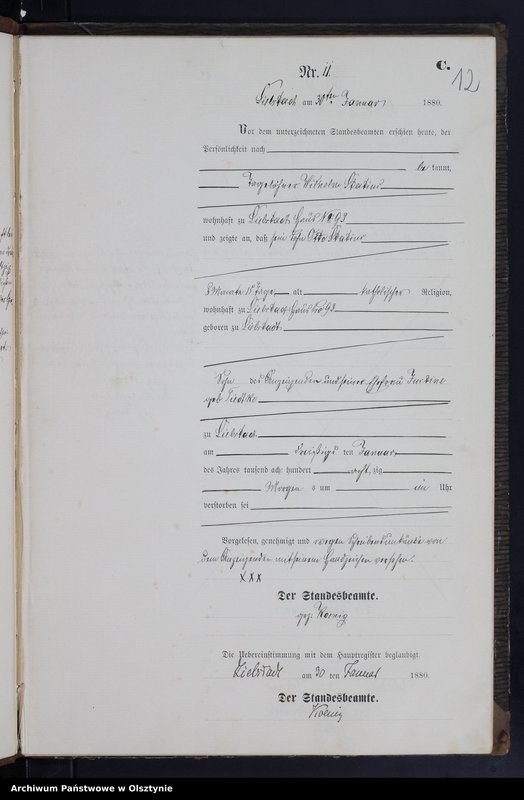 Nr. 11.
C.
12
Liebstadt am 30ten Januar 1880.
Vor dem unterzeichneten Standesbeamten erschien heute, der
Persönlichkeit nach
be kannt,
Tagelöhner Wilhelm
wohnhaft zu Liebstadt Haus № 93
und zeigte an, daß sein Sohn Otto
Monate 11 Tage alt katholischer Religion,
wohnhaft zu Liebstadt Haus No 93
geboren zu Liebstadt
Sohn des Anzeigenden und seiner Ehefrau
geb.
zu Liebstadt
am dreißigsten Januar
des Jahres tausend acht hundert acht zig
Morgens um Uhr
verstorben sei
Vorgelesen, genehmigt und wegen Schreibensunkunde von
dem Anzeigenden mit seinem Handzeichen versehen.
XXX
Der Standesbeamte.
gez. Koenig
Die Uebereinstimmung mit dem Hauptregister beglaubigt.
Liebstadt am 30 ten Januar 1880.
Der Standesbeamte.
Koenig
Archiwum Państwowe w Olsztynie